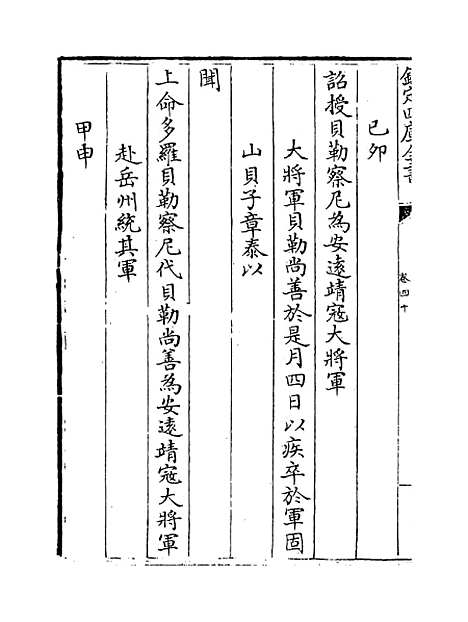 欽定四庫全書
卷四十
己夘
詔授貝勒察尼為安逺靖寇大將軍
大將軍貝勒尚善於是月四日以疾卒於軍固
山貝子章泰以
聞
上命多羅貝勒察尼代貝勒尚善為安逺靖寇大將軍
赴岳州統其軍
甲申